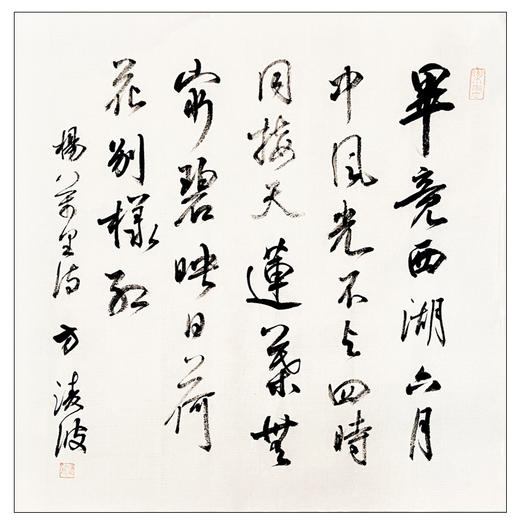 畢竟西湖六月
中風光不与四時
同接天蓮葉無
窮碧映日荷
花别樣红
楊万里诗 方凌波